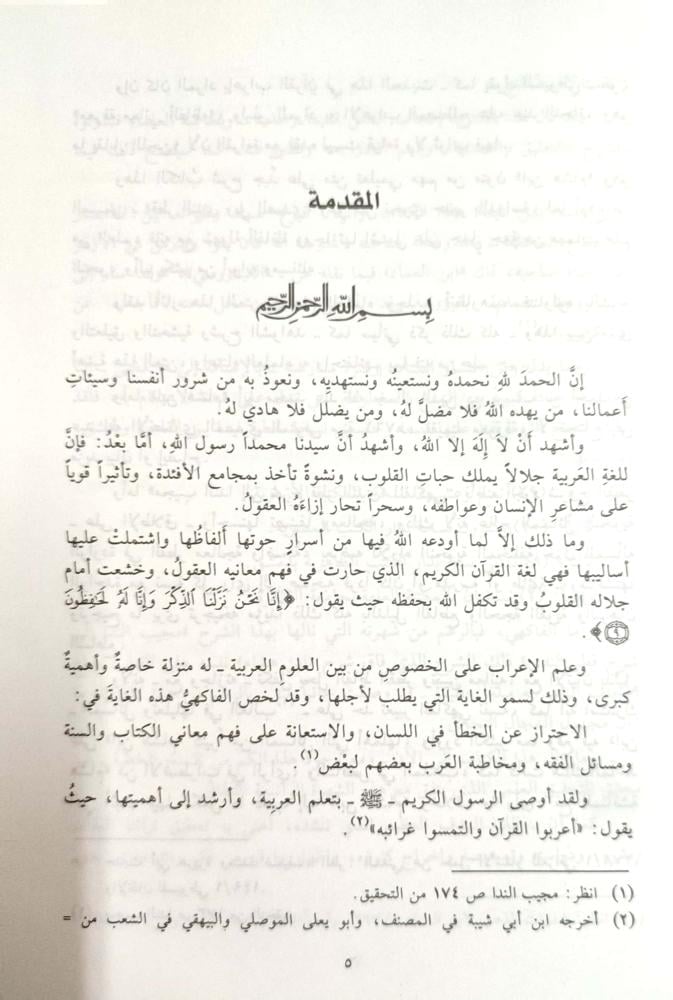 المقدمة
بسم الله الرحمن الرحيم
إنَّ الحمدَ للهِ نحمدهُ ونستعينُه ونستهديِه، ونعوذُ به من شرور أنفسنا وسيئاتِ
أَعمالنا، من يهده اللهُ فلا مضلَّ لهُ، ومن يضلل فلا هادي لهُ.
وأشهد أنْ لاَ إِلَهَ إلا اللهُ، وأشهدُ أنَّ سيدنا محمداً رسول اللهِ، أمَّا بعْدُ: فإنَّ
للغةِ العَربية جلالاً يملك حباتِ القلوب، ونشوةً تأخذ بمجامع الأفئدة، وتأثيراً قوياً
على مشاعرِ الإنسان وعواطفه، وسحراً تحار إزاءَهُ العقولُ.
وما ذلك إلاَّ لما أودعه اللهُ فيها من أسرارٍ حوتها أَلفاظُها واشتملتْ عليها
أساليبها فهي لغة القرآن الكريم، الذي حارت في فهم معانيه العقولُ، وخشعت أمام
جلاله القلوبُ وقد تكفل الله بحفظه حيث يقول: ﴿إِنَّا نَحْنُ نَزَّلْنَا ٱلذِّكْرَ وَإِنَّا لَهُۥ لَحَٰفِظُونَ
۝٩﴾.
وعلم الإعراب على الخصوصِ من بين العلومِ العربية ـ له منزلة خاصةٌ وأهميةٌ
كبرى، وذلك لسمو الغاية التي يطلب لأجلها، وقد لخص الفاكهيُّ هذه الغايةَ في:
الاحتراز عن الخطأ في اللسان، والاستعانة على فهم معاني الكتاب والسنة
ومسائل الفقه، ومخاطبة العَرب بعضهم لبعْض(١).
ولقد أوصى الرسول الكريم ـ ﷺ ـ بتعلم العربِية، وأرشد إلى أهميتها، حيثُ
يقول: «أعربوا القرآن والتمسوا غرائبه»(٢).
(١) انظر: مجيب الندا ص ١٧٤ من التحقيق.
(٢) أخرجه ابن أبي شيبة في المصنف، وأبو يعلى الموصلي والبيهقي في الشعب من =
٥